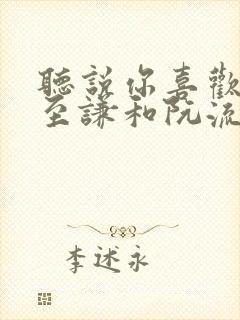 聽說你喜歡
至謙和阮流
李述永